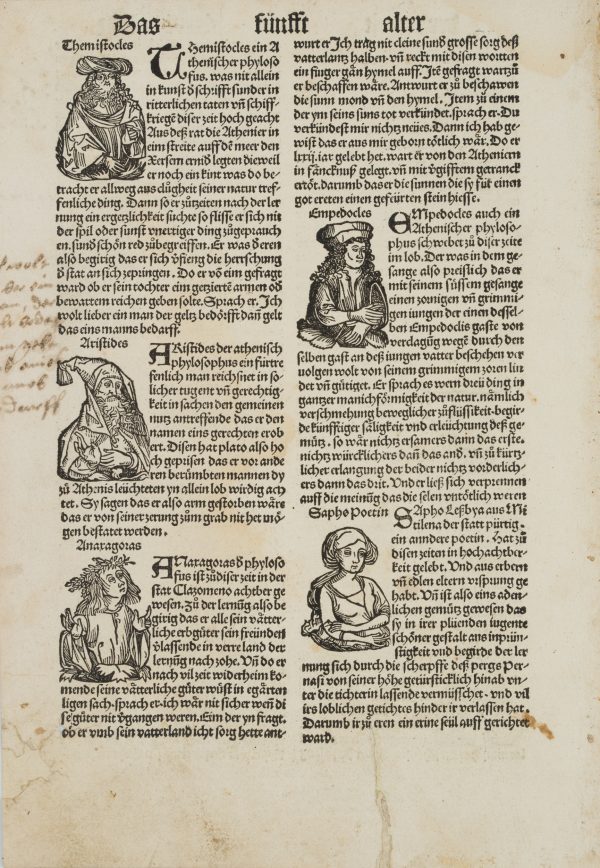 Das fünfft alter
Themistocles
THemistocles ein A
thenischer phyloso
fus. was nit allein
in kunst ď schrifft sunder in
ritterlichen taten vñ schiff
kriegẽ diser zeit hoch geacht
Aus deß rat die Athenier in
eim streite auff dẽ meer den
Xersem ernid legten die weil
er noch ein kint was do be-
tracht er allweg aus clůgheit seiner natur tref-
fenliche ding. Dann so er zůzeiten nach der ler
nung ein ergetzlichkeit sůchte so flisse er sich nit
der spil oder sunst vnertiger ding zůgeprauch
en. sund̃ schön red zůbegreiffen. Er was ď eren
also begirig das er sich vßieng die herrschung
ď stat an sich zepringen. Do er võ eim gefragt
ward ob er sein tochter eim getzierten armen od̃
bewartem reichen geben solte. Sprach er. Ich
wolt lieber ein man der geltz bedörfft dañ gelt
das eins manns bedarff.
Aristides
ARistides der athenisch
phylosophus ein fürtre
fenlich man reichsnet in so
licher tugent vñ gerechtig-
keit in sachen den gemeinen
nutz antreffende das er den
namen eins gerechten erob
ert. Disen hat plato also ho
ch geprisen das er vor ande
ren berümbten mannen dy
zů Athenis leüchteten yn allein lob wirdig ach
tet. Sy sagen das er also arm gestorben wäre
das er von seiner zerung zům grab nit het mö-
gen bestatet werden.
Anaxagoras
ANaxagoras ď phyloso
fus ist zů diser zeit in der
stat Clazomeno achtber ge
wesen. Zů der lernũg also be
girig das er alle sein vätter-
liche erbgüter sein freünden
v̈lassende in verre land der
lernũg nach zohe. Vñ do er
nach vil zeit widerheim ko-
mende seine vätterliche güter wüst in egärten
ligen sach. sprach er. ich wär nit sicher weñ di
se gůter nit v̈gangen weren. Eim der yn fragt.
ob er vmb sein vatterland icht sorg hette ant-
wurt er Ich trag nit cleine sund̃ grosse sorg deß
vatterlantz halben. vñ reckt mit disen wortten
ein finger gãn hymel auff. Itẽ gefragt war zů
er beschaffen wäre. Antwurt er zů beschawen
die sunn mond vñ den hymel. Item zů einem
der yn seins suns tot verkündet. sprach er. Du
verkündest mir nichtz neües. Dann ich hab ge-
wist das er aus mir geborn tötlich wär. Do er
lxxij. iar gelebet het. wart er von den Atheniern
in fäncknuß gelegt. vñ mit v̈gifftem getranck
ertöt. darumb das er die sunnen die sy für einen
got ereten einen gefeürten stein hiesse.
Empedocles
EMpedocles auch ein
Athenischer phyloso-
phus schwebet zů diser zeite
im lob. Der was in dem ge-
sange also preislich das er
mit seinem süssem gesange
einen zornigen vñ grimmi-
gen iungen der einen dessel-
ben Empedoclis gaste von
verclagũg wegẽ durch den
selben gast an deß iungen vatter beschehen ver
uolgen wolt von seinem grimmigem zoren lin
det vñ gütiget. Er sprach es wern drei ding in
gantzer manichförmigkeit der natur. nämlich
verschmehung beweglicher zůflüssikeit. begir-
de künfftiger säligkeit vnd erleüchtung deß ge-
mütz. so wär nichtz ersamers dann das erste.
nichtz würcklichers dañ das and. vñ zů kürtz-
licher erlangung der beider nichtz vorderlich-
ers dann das drit. Vnd er ließ sich verprennen
auff die meinũg das die selen vntötlich weren
Sapho Poetin
SApho Lesbya aus Mi
tilena der statt pürtig.
ein anndere poetin. Hat zů
disen zeiten in hochachtber-
keit gelebt. Vnd aus erbern
vñ edlen eltern vrsprung ge
habt. Vñ ist also eins ade-
lichen gemütz gewesen das
sy in irer plüenden iugente
schöner gestalt aus inprün-
stigkeit vnd begirde der ler
nung sich durch die scherpffe deß pergs Per-
nasi von seiner höhe getürsticklich hinab vn-
ter die tichterin lassende vermisschet. vnd vil
irs loblichen getichtes hinder ir verlassen hat.
Darumb ir zů eren ein erine seül auff gerichtet
ward.